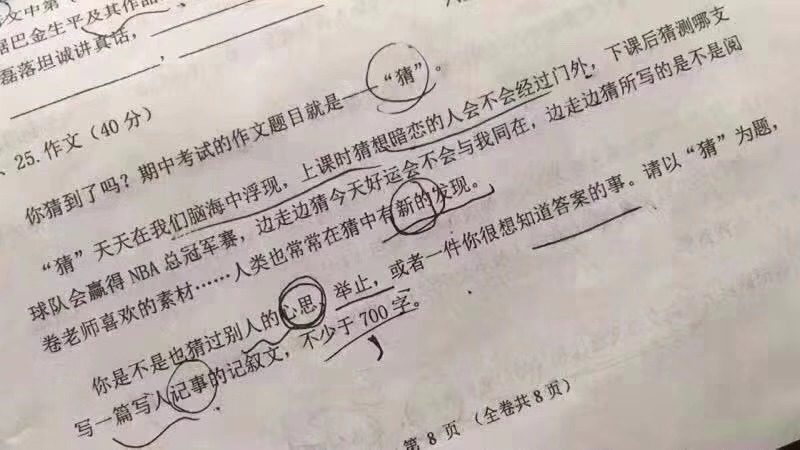 文中第（
据巴金生平及其作品
磊落坦诚讲真话，，
、25.作文（40 分）
你猜到了吗？期中考试的作文题目就是——“猜”。
“猜”天天在我们脑海中浮现，上课时猜想暗恋的人会不会经过门外，下课后猜测哪支
球队会赢得 NBA 总冠军赛，边走边猜今天好运会不会与我同在，边走边猜所写的是不是阅
卷老师喜欢的素材……人类也常常在猜中有新的发现。
你是不是也猜过别人的心思、举止，或者一件你很想知道答案的事。请以“猜”为题，
写一篇写人记事的记叙文，不少于 700 字。
第 8 页（全卷共 8 页）